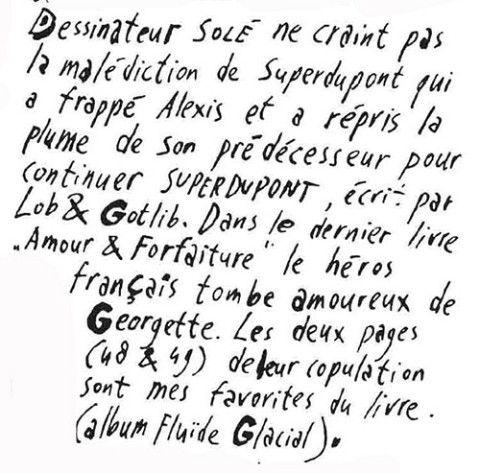 Dessinateur SOLÉ ne craint pas
la malédiction de Superdupont qui
a frappé Alexis et a répris la
plume de son prédécesseur pour
continuer SUPERDUPONT, écrit par
Lob & Gotlib. Dans le dernier livre
„Amour & Forfaiture" le héros
français tombe amoureux de
Georgette. Les deux pages
(48 & 49) de leur copulation
sont mes favorites du livre.
(album Fluïde Glacial).